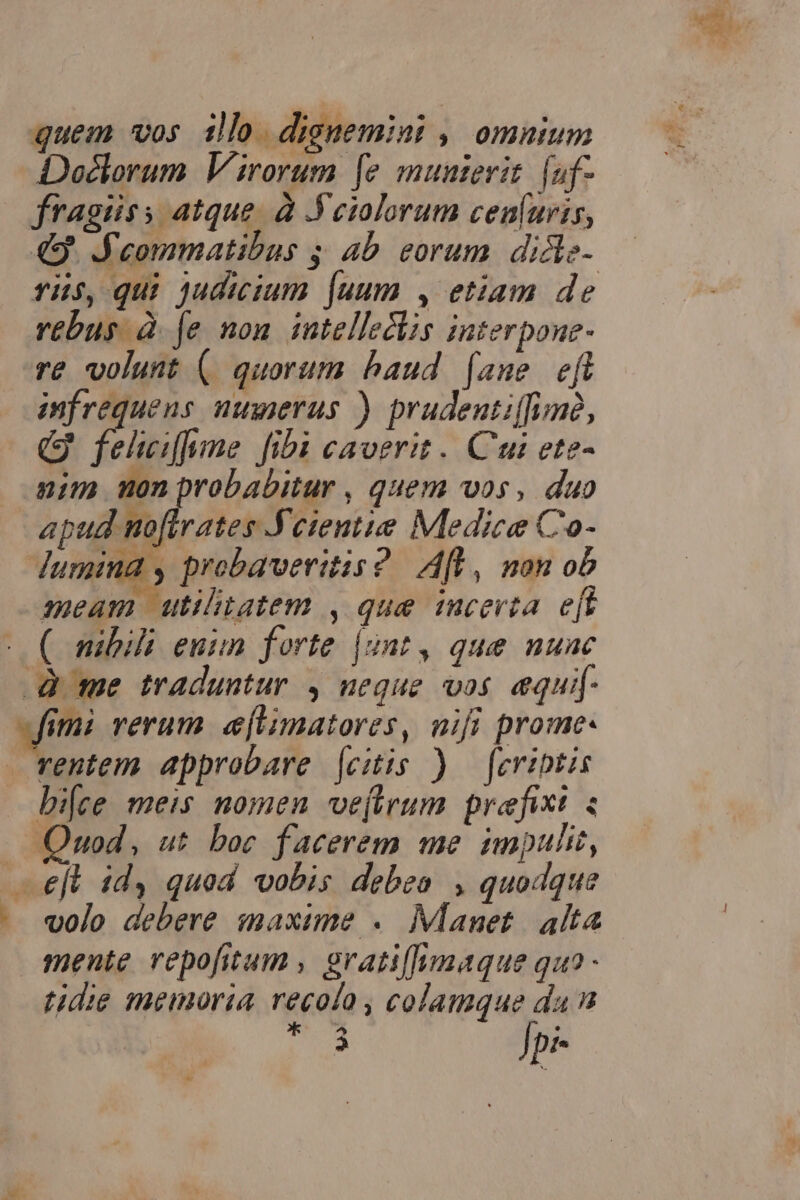 quem vos illo dignemini , omnium
Doctorum Virorum ſe munierit ſuf-
fragiis; atque à Sciolorum cenſuris,
& Scommatibus ; ab eorum dicte-
riis, qui judicium ſuum , etiam de
rebus à ſe non intellectis interpone-
re volunt ( quorum haud ſane eſt
infrequens numerus ) prudentiſſimè,
& feliciſſime ſibi caverit. Cui ete-
nim non probabitur , quem vos, duo
apud noſtrates Scientiæ Medicæ Co-
lumina , probaveritis? Aſt, non ob
meam utilitatem , quæ incerta eſt
( nihili enim forte ſunt, quæ nunc
à me traduntur , neque vos æquiſ-
ſimi rerum æſtimatores, niſi prome-
rentem approbare ſcitis ) ſcriptis
hiſce meis nomen veſtrum præfixi :
Quod, ut hoc facerem me impulit,
eſt id, quod vobis debeo , quodque
volo debere maxime . Manet alta
mente repoſitum , gratiſſimaque quo-
tidie memoria recolo, colamque dun
* 3 ſpi-